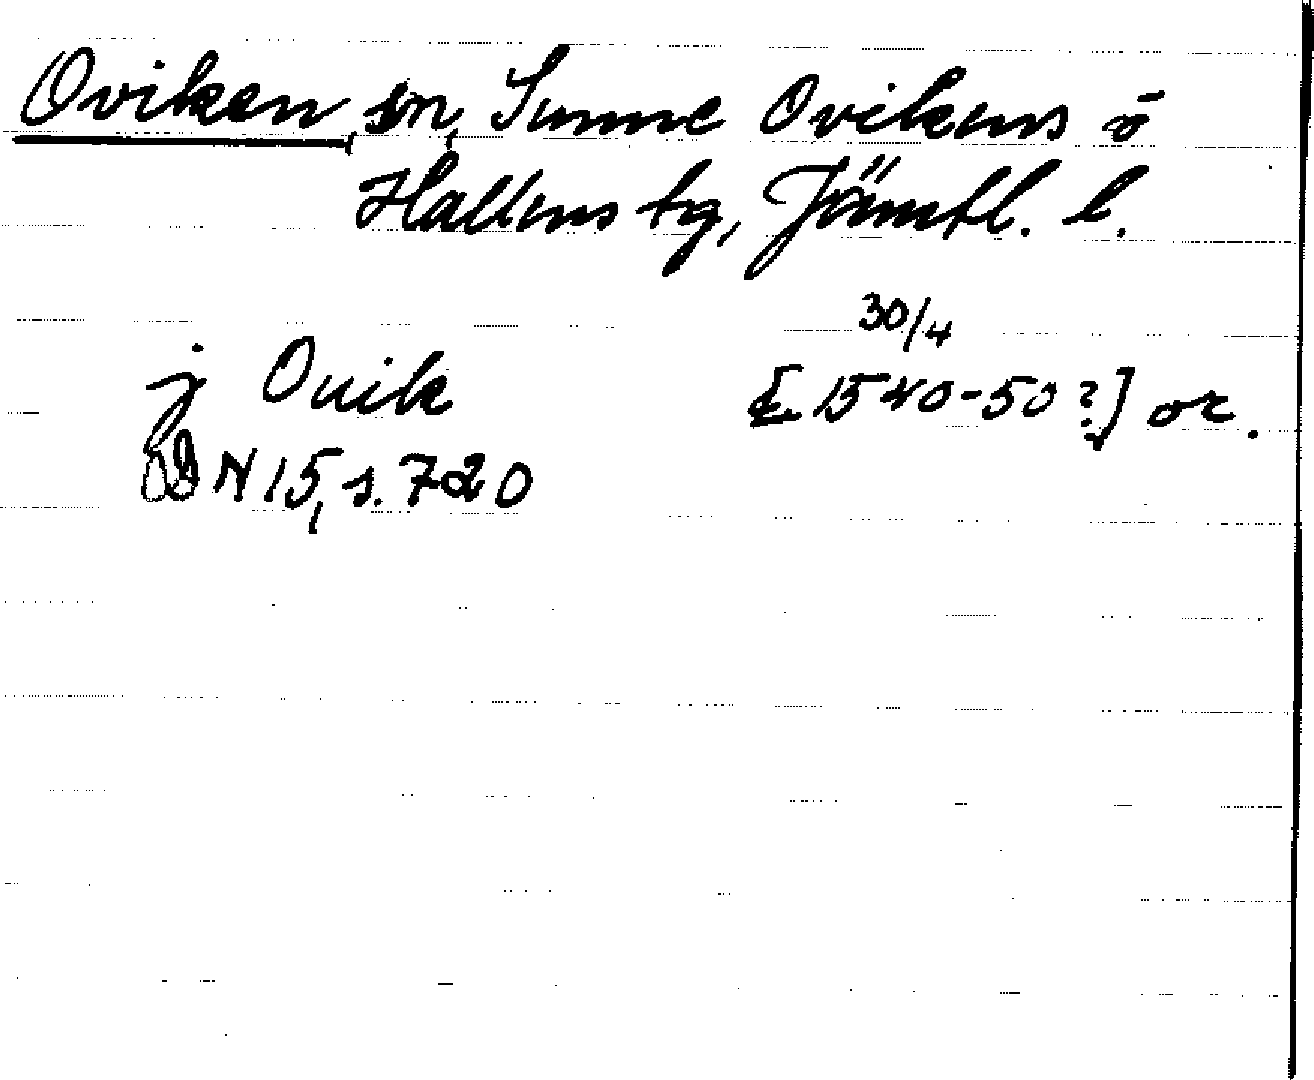 Oviken, sn, Sunne Ovikens o
Hallens tg, Jämtl. l.
30/4
j Ouik [1540-50?] or.
DN 15, s. 720